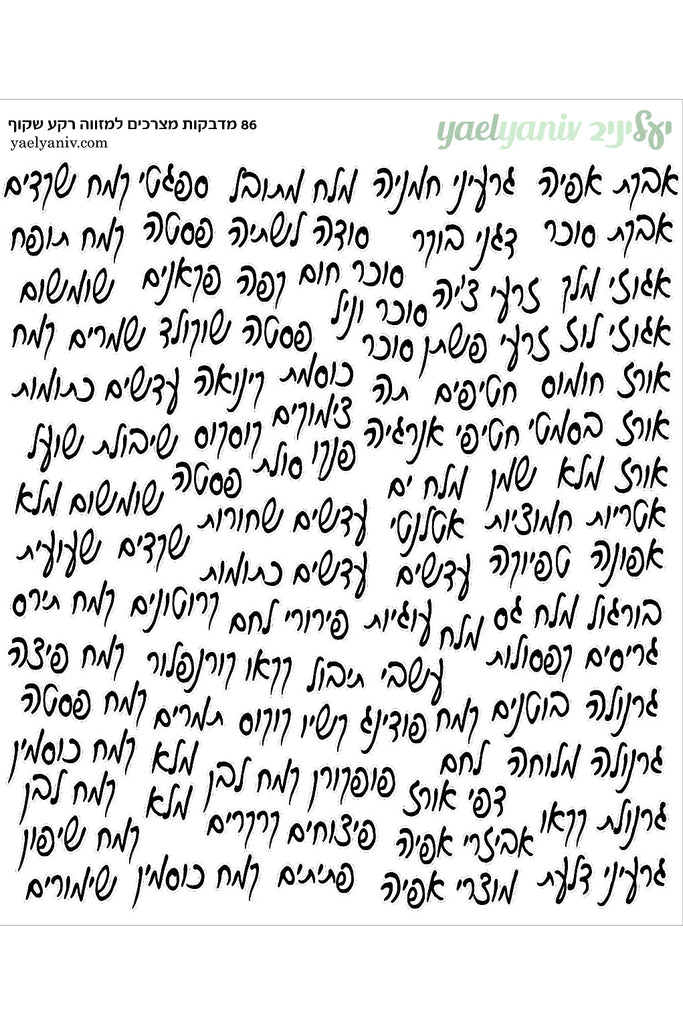 86 מדבקות מצרכים למזווה רקע שקוף
yaelyaniv יעליניב
yaelyaniv.com
אבקת אפיה גרעיני חמניה מלח מתובל ספגטי קמח שקדים
אבקת סוכר דגני בוקר סודה לשתיה פסטה קמח תופח
אגוזי מלך זרעי צ'יה סוכר חום קפה פקאנים שומשום
אגוזי לוז זרעי פשתן סוכר סוכר וניל פסטה שוקולד שמרים קמח
אורז חומוס חטיפים תה כוסמת קינואה עדשים כתומות
אורז בסמטי חטיפי אנרגיה צימוקים קוסקוס שיבולת שועל
אורז מלא שמן מלח ים פנקו סולת פסטה שומשום מלא
אטריות חמוציות אטלנטי עדשים שחורות שקדים שעועית
אפונה טפיוקה עדשים עדשים כתומות
בורגול מלח גס מלח עוגיות פירורי לחם קרוטונים קמח תירס
גריסים קפסולות עשבי תיבול קקאו קורנפלור קמח פיצה
גרנולה בוטנים קמח פודינג קשיו קוקוס תמרים קמח פסטה
גרנולה מלוחה לחם פופקורן קמח לבן מלא קמח כוסמין
גרנולת קקאו דפי אורז מלא קמח לבן
אביזרי אפיה פיצוחים קרקרים קמח שיפון
גרעיני דלעת מוצרי אפיה פתיתים קמח כוסמין שימורים